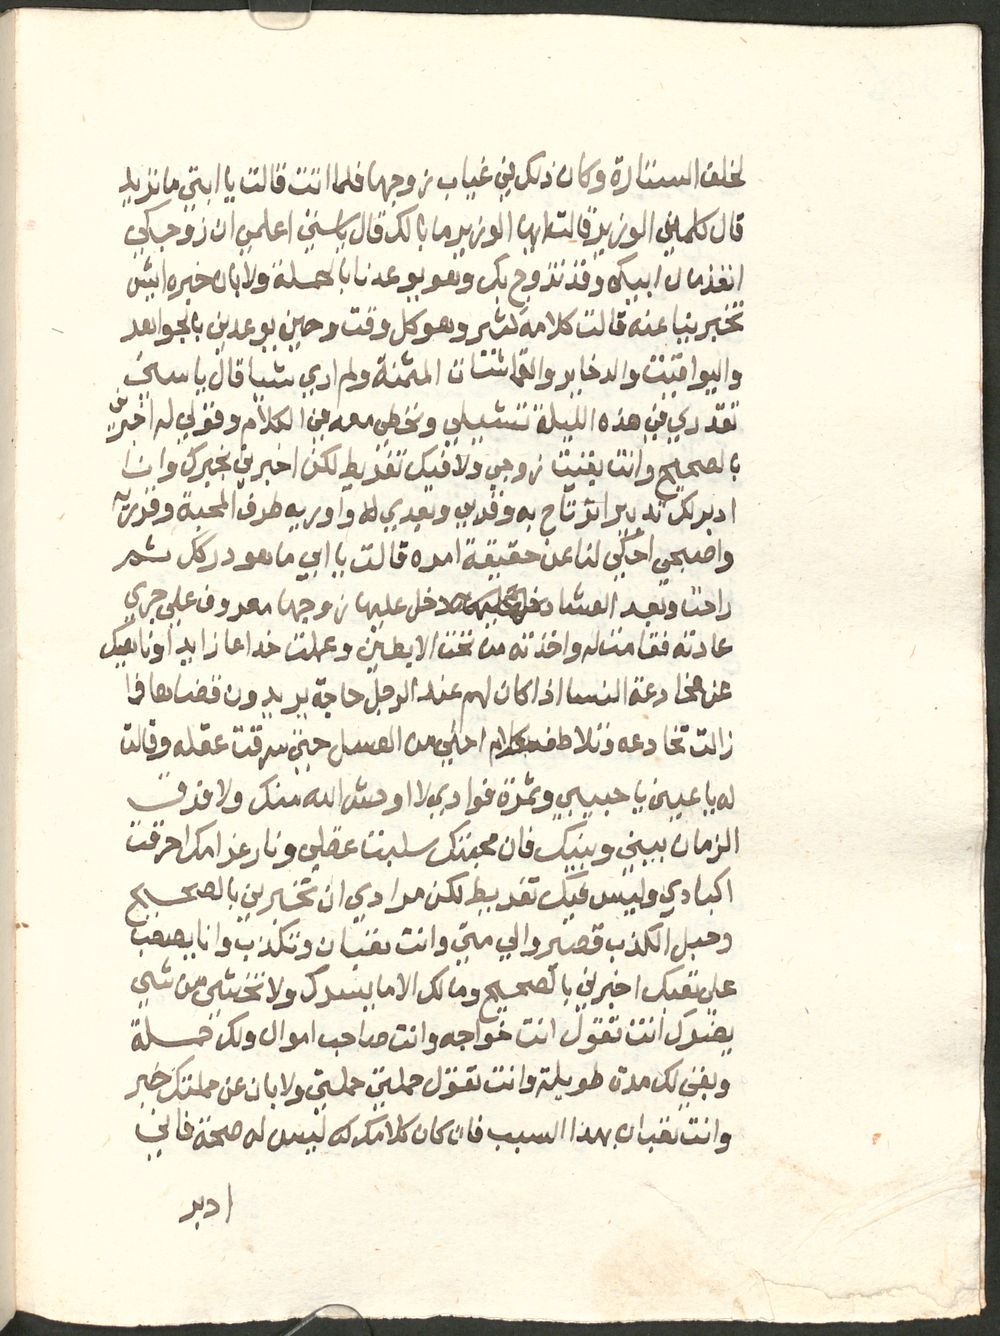 لخلف الستارة وكان ذلك في غياب زوجها فلما اتت قالت يا ابتي ما تريد
قال كلميني الوزير قالت ايها الوزير ما بالك قال يا ستي اعلمي ان زوجكي
انفذ مال ابيكي وقد تزوج بك وهو يوعدنا بالحملة ولا بان خبره ايش
تخبرينا عنه قالت كلامه كثير وهو كل وقت وحين يوعدني بالجواهر
واليواقيت والدخاير والقماشات المثمنة ولم اري شيا قال يا ستي
تقدري في هذه الليلة تنشبلي وتخطي معه في الكلام وقولي له اخبرني
بالصحيح وانت بقيت زوجي ولا فيك تفريط لكن اخبرني بخبرك وانا
ادبر لك تدبيرا ترتاح به وقربي وبعدي له واوريه طرف المحبة وقرريه
واصبحي احكي لنا عن حقيقة امره قالت يا ابي ما هو درككل ثم
راحت وبعد العشا دخل عليها زوجها معروف علي جري
عادته فقامت له واخذته من تحت الابطين وعملت خداعا زايد اوناهيك
عن مخادعة النسا اذا كان لهم عند الرجل حاجة يريدون قضاها فا
زالت تخادعه وتلاطفه بكلام احلي من العسل حتي سرقت عقله وقالت
له يا عيني يا حبيبي وثمرة فوادي لا اوحش الله منك ولا فرق
الزمان بيني وبينك فان محبتك سلبت عقلي ونار غرامك احرقت
اكبادي وليس فيك تفريط لكن مرادي ان تخبرني بالصحيح
وحبل الكذب قصير والي متي وانت تغيان وتكذب وانا يصعب
علي تعبك اخبرني بالصحيح ومالك الا ما يسرك ولا تخشي من شي
يضرك انت تقول انت خواجه وانت صاحب اموال ولك حملة
وبقي لك مدة طويلة وانت تقول حملتي حملتي ولا بان عن حملتك خبر
وانت تعبان بهذا السبب فان كان كلامك كه ليس له صحة فاني
ادبر